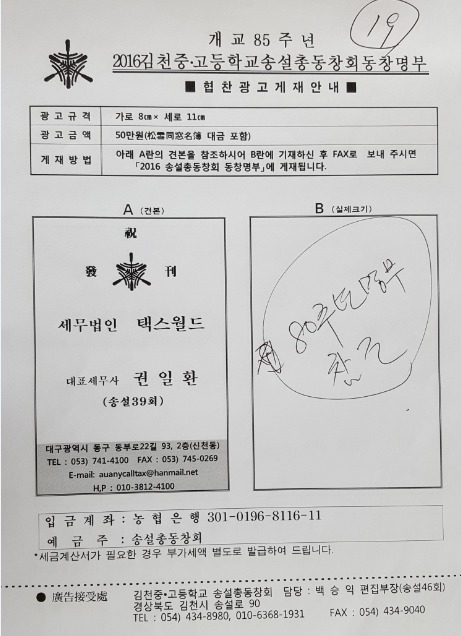 19
개교 85주년
2016김천중·고등학교송설총동창회동창명부
■ 협찬광고게재안내 ■
광고규격 가로 8㎝× 세로 11㎝
광고금액 50만원(松雪同窓名簿 대금 포함)
게재방법 아래 A란의 견본을 참조하시어 B란에 기재하신 후 FAX로 보내 주시면
「2016 송설총동창회 동창명부」에 게재됩니다.
A (견본)
祝
發 刊
세무법인 텍스월드
대표세무사 권일환
(송설39회)
대구광역시 동구 동부로22길 93, 2층(신천동)
TEL : 053) 741-4100 FAX : 053) 745-0269
E-mail: auanycalltax@hanmail.net
H,P : 010-3812-4100
B (실제크기)
80주년명부
참고
입금계좌 : 농협은행 301-0196-8116-11
예금주 : 송설총동창회
*세금계산서가 필요한 경우 부가세액 별도로 발급하여 드립니다.
● 廣告接受處 김천중·고등학교 송설총동창회 담당 : 백승익 편집부장(송설46회)
경상북도 김천시 송설로 90
TEL : 054) 434-8980, 010-6368-1931 FAX : 054) 434-9040